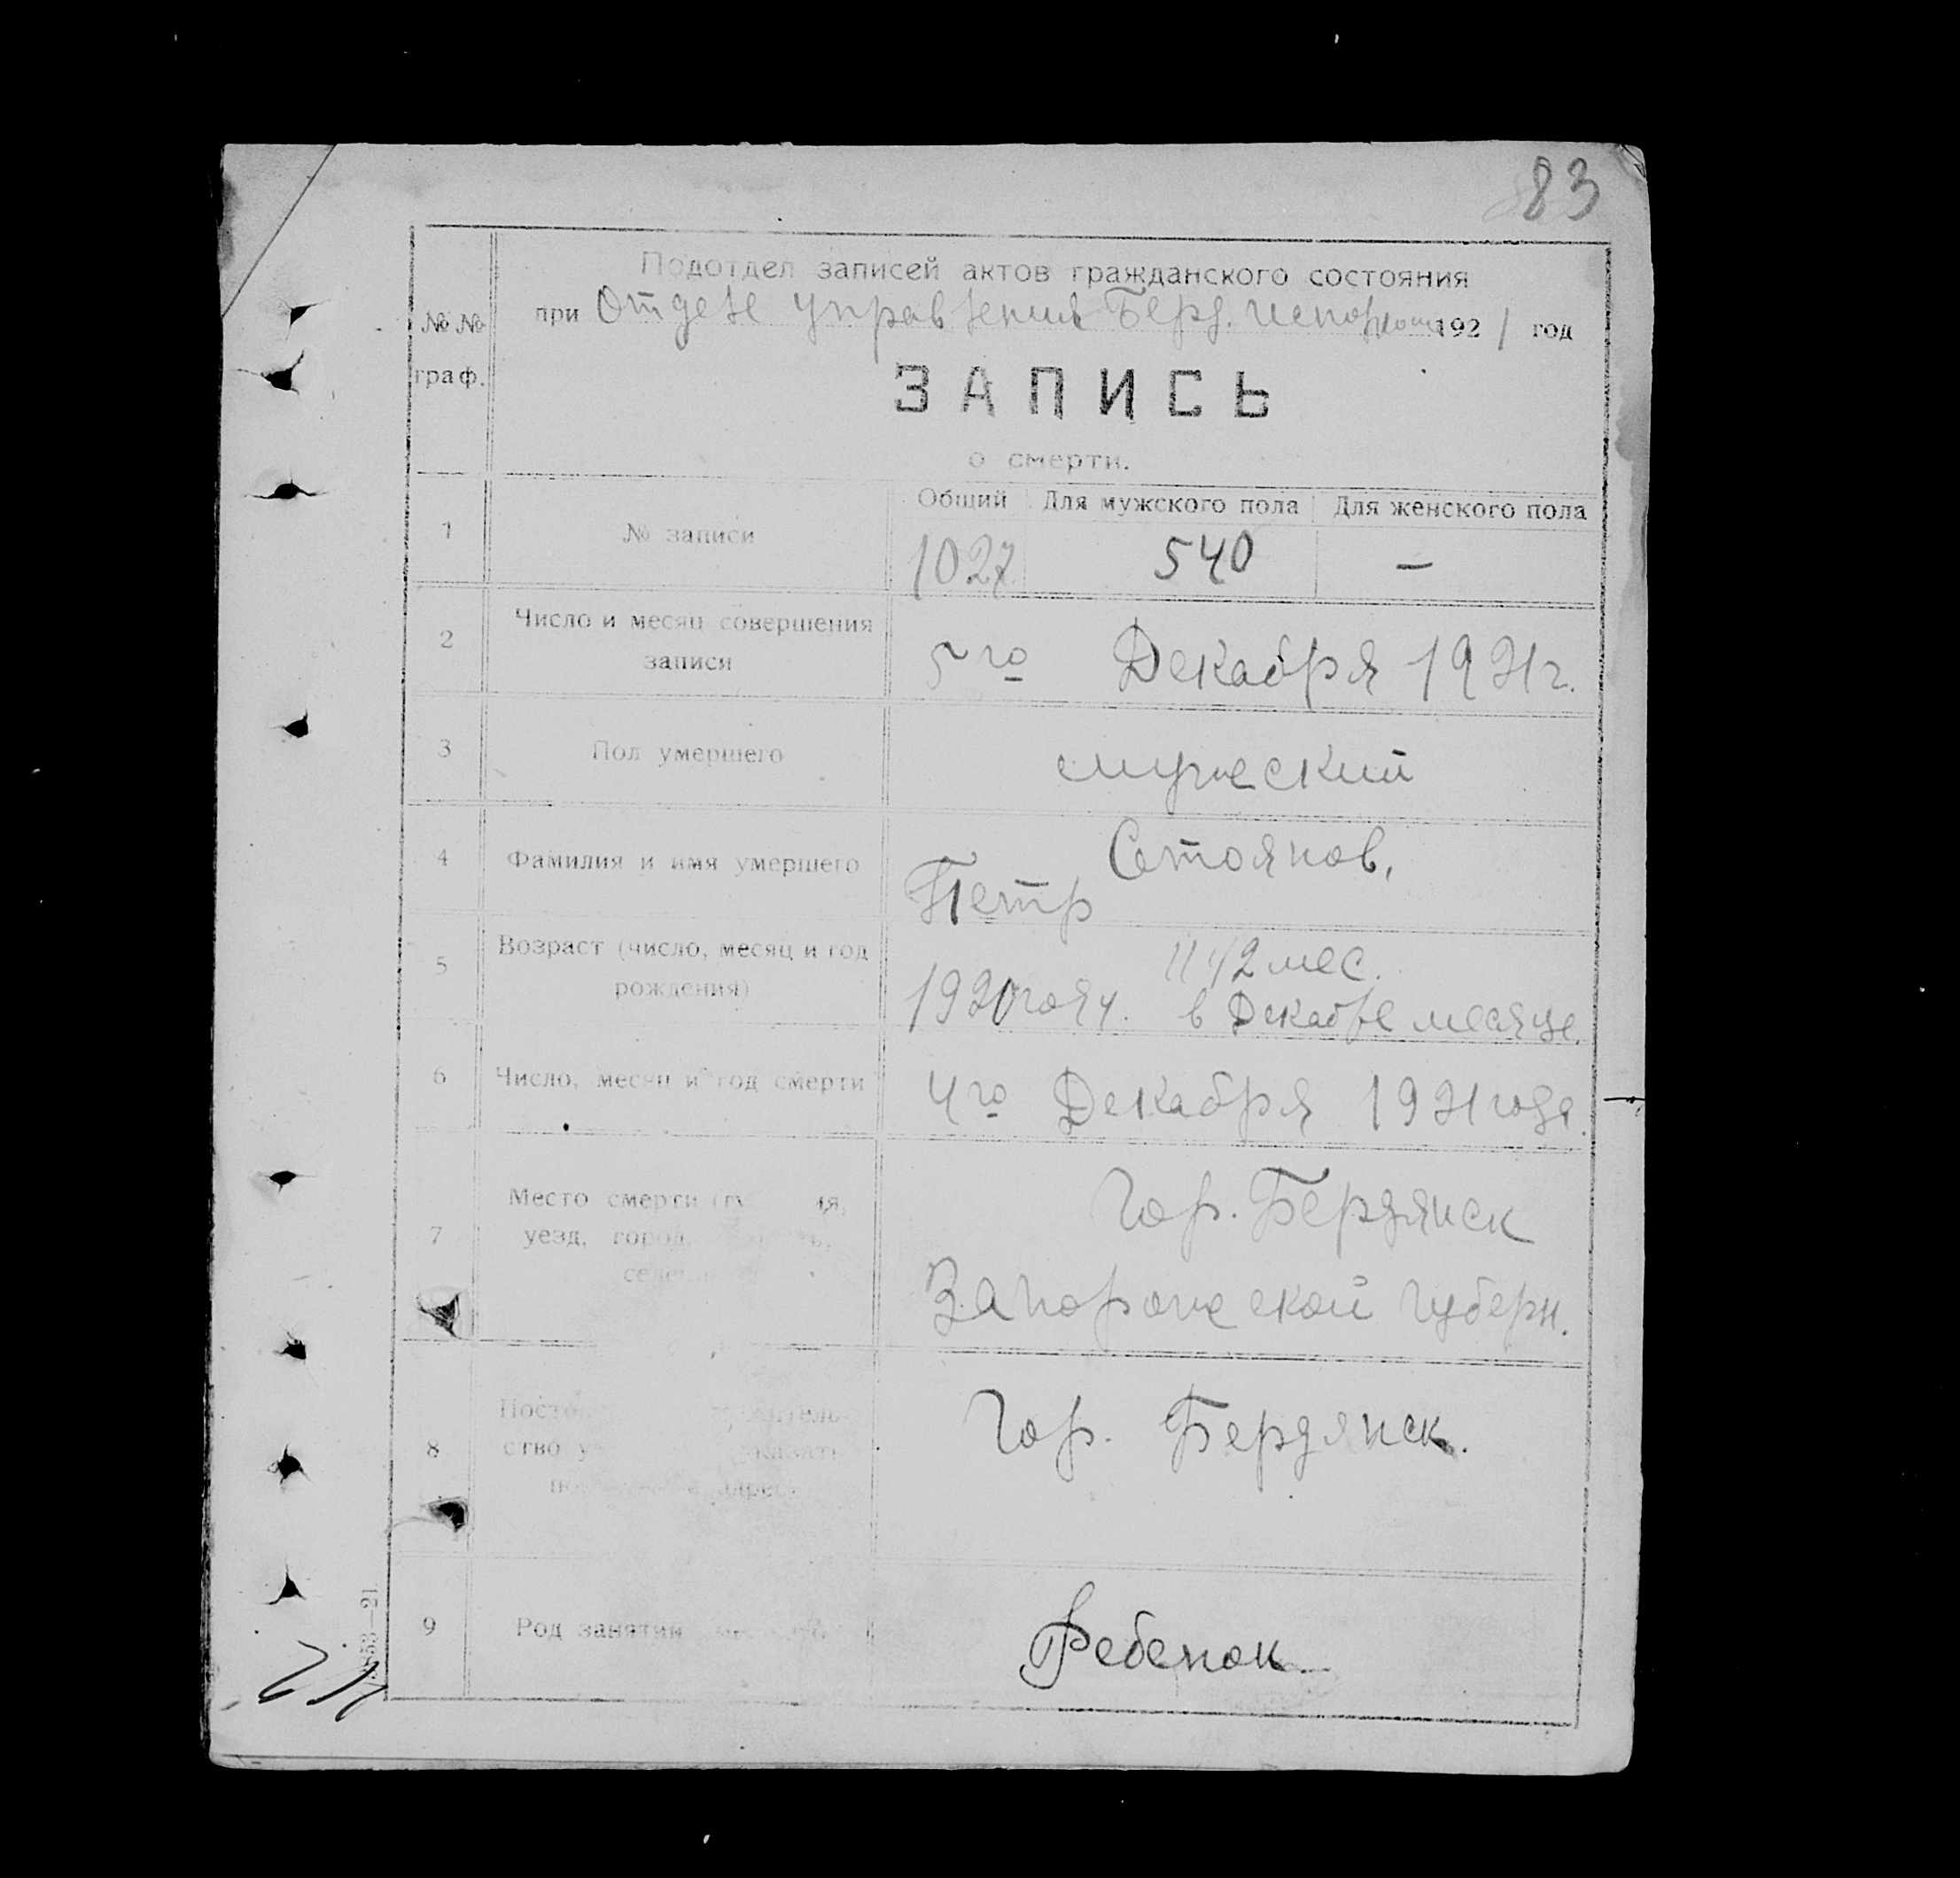 83
Подотдел записей актов гражданского состояния
при Отделе Управления Берд. 1921 год
№№ граф.
ЗАПИСЬ
о смерти.
Общий Для мужского пола Для женского пола
1 № записи 1027 540 —
2 Число и месяц совершения записи 5го Декабря 1921г.
3 Пол умершего мужеский
4 Фамилия и имя умершего Стоянов,
Петр
5 Возраст (число, месяц и год рождения) 11 1/2 мес.
1920 году. в Декабре месяце.
6 Число, месяц и год смерти 4го Декабря 1921 года.
7 Место смерти
уезд, город,
Гор. Бердянск
Запорожеской губерн.
8 Гор. Бердянск.
9 Род занятий Ребенок.